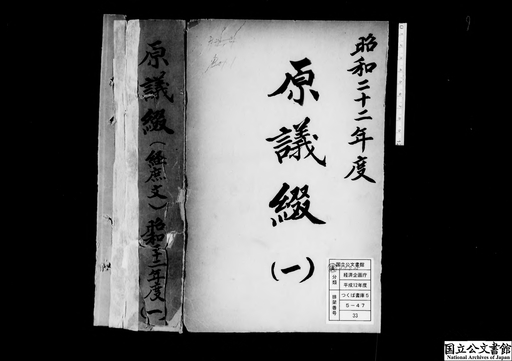 昭和二十二年度
原議綴
(一)
原議綴(経庶文)昭和二十二年度(一)
国立公文書館
分類
経済企画庁
平成12年度
つくば書庫5
5-47
排架番号
33
国立公文書館
National Archives of Japan